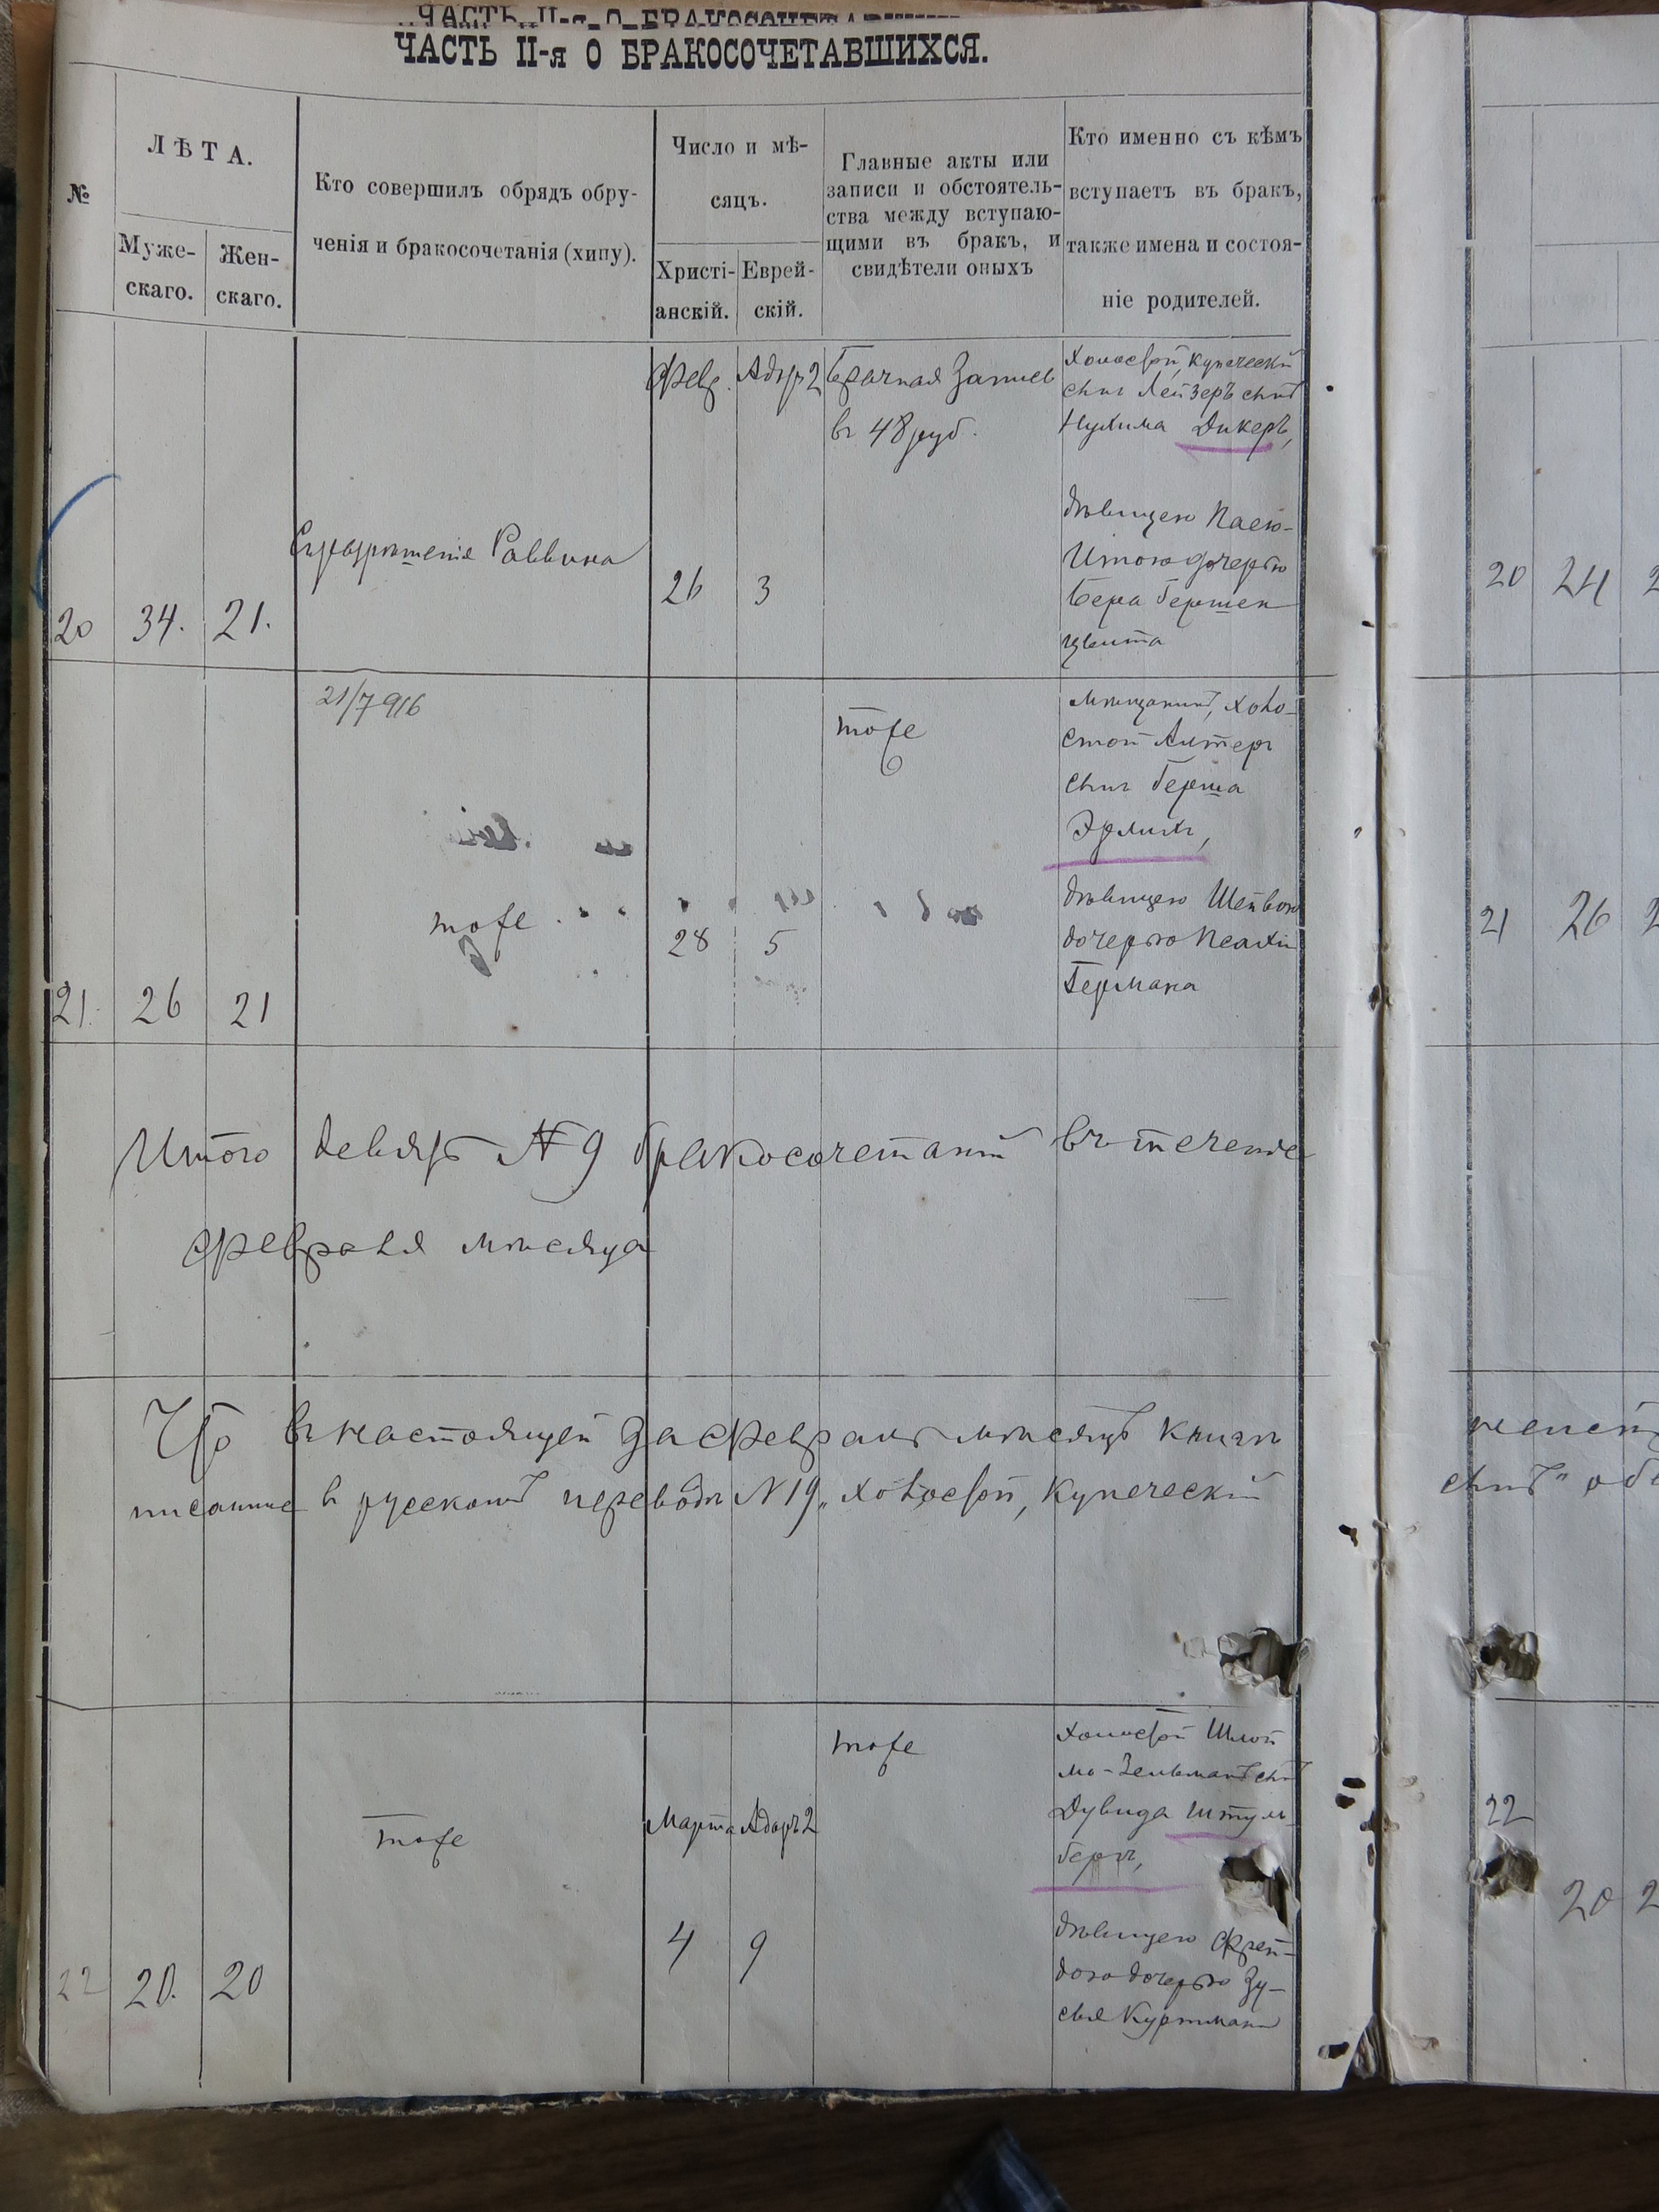 ЧАСТЬ II-я О БРАКОСОЧЕТАВШИХСЯ.
№
ЛѢТА.
Муже-
скаго.
Жен-
скаго.
Кто совершилъ обрядъ обру-
ченія и бракосочетанія (хипу).
Число и мѣ-
сяцъ.
Христі-
анскій.
Еврей-
скій.
Главные акты или
записи и обстоятель-
ства между вступаю-
щими въ бракъ, и
свидѣтели оныхъ
Кто именно съ кѣмъ
вступаетъ въ бракъ,
также имена и состоя-
ніе родителей.
20
34.
21.
Раввина
Февр.
26
Адаръ 2
3
Брачная Запись
въ 48 руб.
Холостой, купеческій
сынъ Лейзеръ сынъ
Нухима Дикеръ,
дѣвицею Пасю-
Итою дочерью
Бера Гершен
цвита
21/7 916
21.
26
21
тоже
28
5
тоже
Мѣщанинъ, холо-
стой Алтеръ
сынъ Герша
Эрлихъ,
дѣвицею Шейвою
дочерью
Германа
Итого девять № 9 бракосочетаній въ теченіе
февраля мѣсяца
Что в настоящей за февраль мѣсяцъ книгѣ
писанные в русскомъ переводѣ № 19 „холостой, купеческій
22
20.
20
тоже
Марта
4
Адаръ 2
9
тоже
Холостой Шлой
ма-Зельманъ сынъ
Дувида Штум
бергъ,
дѣвицею Фрей-
дою дочерью Зу-
сья Куртмана
20
24
2
21
26
2
сынъ"
22
20
2